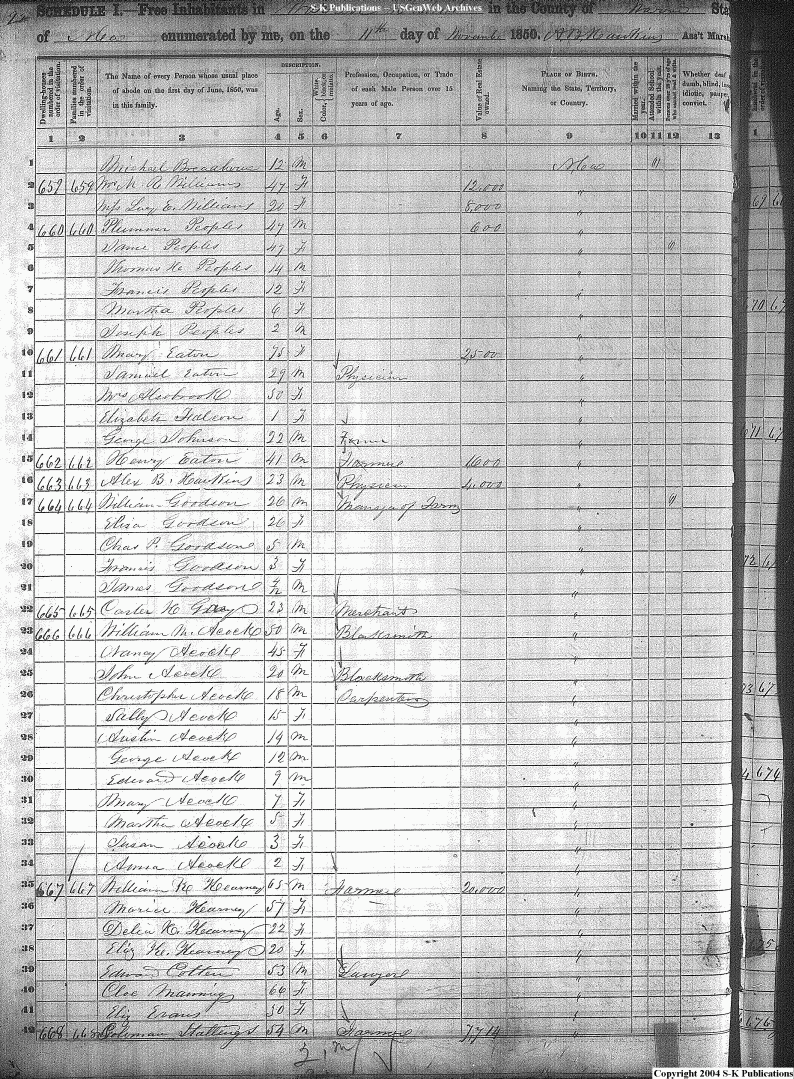 S-K Publications - USGenWeb Archives
SCHEDULE I.—Free Inhabitants in in the County of Sta
of enumerated by me, on the 11th day of November 1850. Ass't Marsh
Dwelling-houses numbered in the order of visitation. Families numbered in the order of visitation. The Name of every Person whose usual place of abode on the first day of June, 1850, was in this family. DESCRIPTION. Age. Sex. Color, White, black, or mulatto. Profession, Occupation, or Trade of each Male Person over 15 years of age. Value of Real Estate owned. PLACE OF BIRTH. Naming the State, Territory, or Country. Married within the year. Attended School within the year. Whether deaf and dumb, blind, insane, idiotic, pauper, or convict.
1 2 3 4 5 6 7 8 9 10 11 12 13
1 Michael 12 M "
2 659 659 Williams 47 F 12,000 "
3 Lucy E. Williams 20 F 8,000 "
4 660 660 Plummer Peoples 47 M 600 "
5 Peoples 47 F " "
6 Thomas Peoples 14 M "
7 Francis Peoples 12 F "
8 Martha Peoples 6 F "
9 Joseph Peoples 2 M "
10 661 661 Mary Eaton 75 F 2500 "
11 Samuel Eaton 29 M Physician "
12 Mrs Alsobrook 50 F "
13 Elizabeth Falcon 1 F "
14 George Johnson 22 M "
15 662 662 Henry Eaton 41 M Farmer 1600 "
16 663 663 Alex B. Hawkins 23 M Physician 4,000 "
17 664 664 William Goodson 26 M Manager of Farm " "
18 Eliza Goodson 26 F "
19 Chas P. Goodsone 5 M "
20 Francis Goodson 3 F "
21 James Goodsone 4/12 M "
22 665 665 Carter 23 M Merchant "
23 666 666 William M. Acock 50 M Blacksmith "
24 Nancy Acock 45 F "
25 John Acock 20 M Blacksmith "
26 Christopher Acock 18 M Carpenter "
27 Sally Acock 15 F "
28 Austin Acock 14 M "
29 George Acock 12 M "
30 Edward Acock 9 M "
31 Mary Acock 7 F "
32 Martha Acock 5 F "
33 Susan Acock 3 F "
34 Anna Acock 2 F "
35 667 667 William K Kearney 65 M Farmer 20,000 "
36 Maria Kearney 57 F "
37 Delia Kearney 22 F "
38 Eliz Kearney 20 F "
39 Edward Cotten 53 M Lawyer "
40 Cloe Manning 66 F "
41 Eliz Evans 50 F "
42 668 668 Coleman Stallings 54 M Farmer 7,714 "
Copyright 2004 S-K Publications